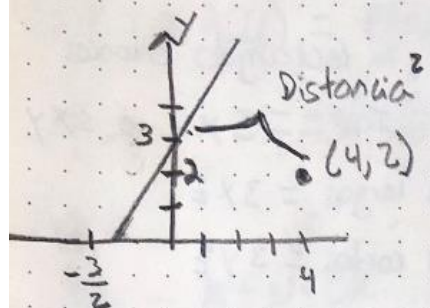 y
Distancia²
3
(4,2)
2
-3/2
4